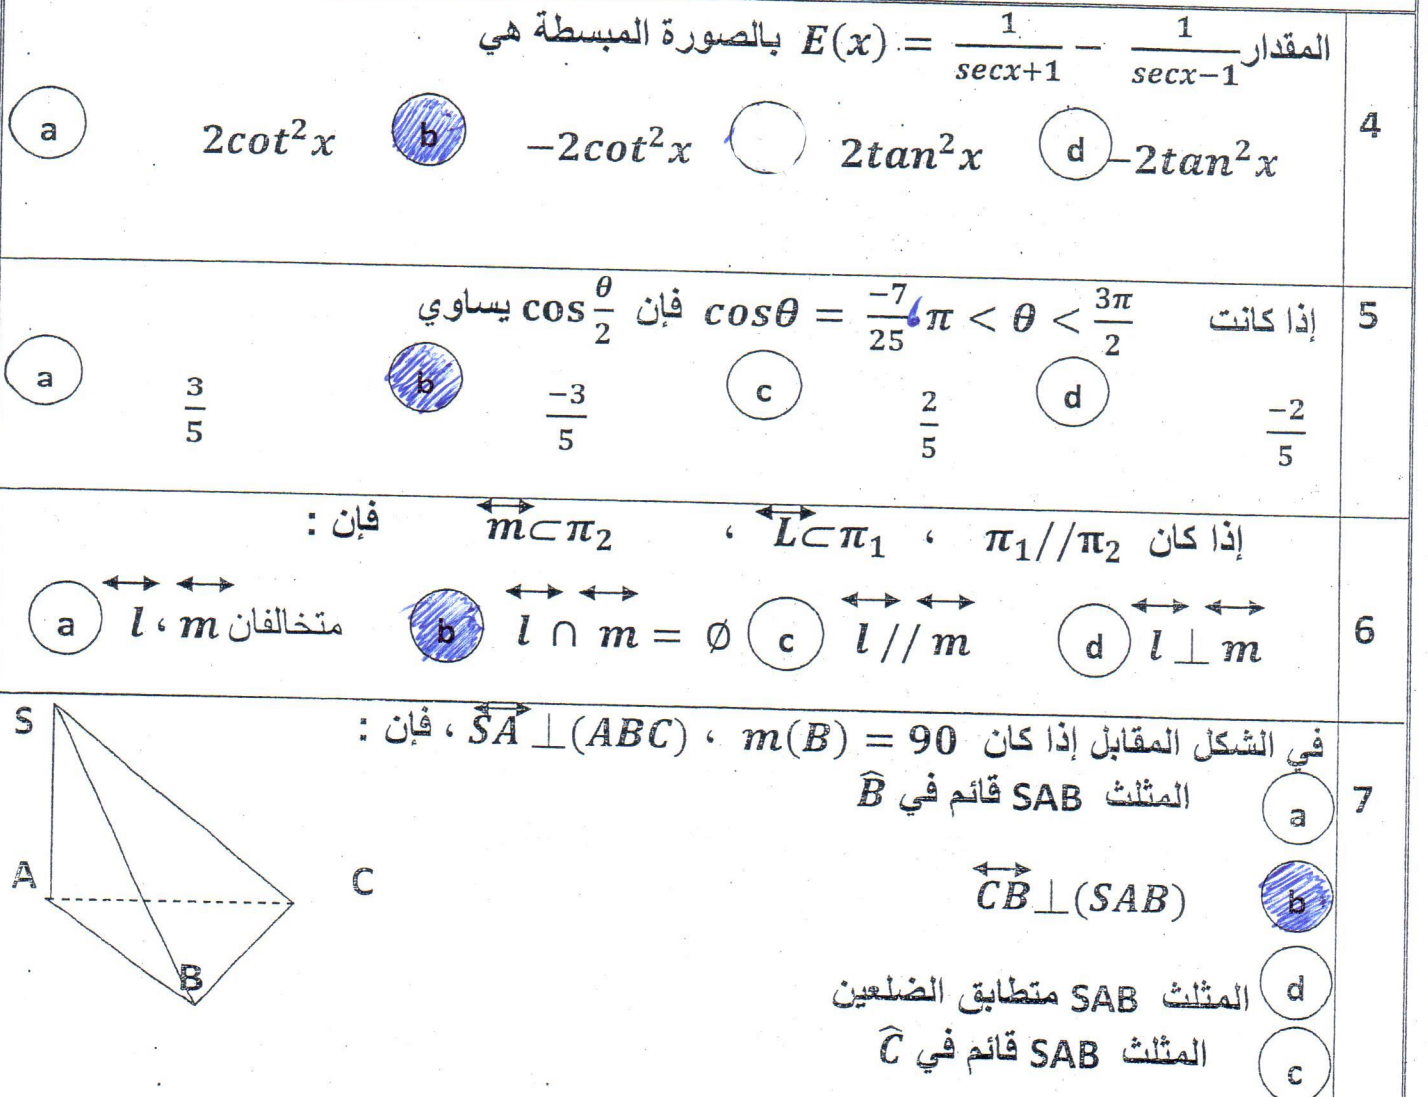 4
المقدار E(x) = 1/(secx+1) − 1/(secx−1) بالصورة المبسطة هي
a 2cot²x b −2cot²x 2tan²x d −2tan²x
5
إذا كانت cosθ = −7/25 ، π < θ < 3π/2 فإن cos θ/2 يساوي
a 3/5 b −3/5 c 2/5 d −2/5
6
إذا كان π₁//π₂ ، L⃡⊂π₁ ، m⃡⊂π₂ فإن :
a l⃡ ، m⃡ متخالفان b l⃡ ∩ m⃡ = ∅ c l⃡ // m⃡ d l⃡ ⊥ m⃡
7
في الشكل المقابل إذا كان m(B) = 90 ، S⃡A ⊥(ABC) ، فإن :
a المثلث SAB قائم في B̂
b C⃡B⊥(SAB)
d المثلث SAB متطابق الضلعين
c المثلث SAB قائم في Ĉ
S
A
C
B